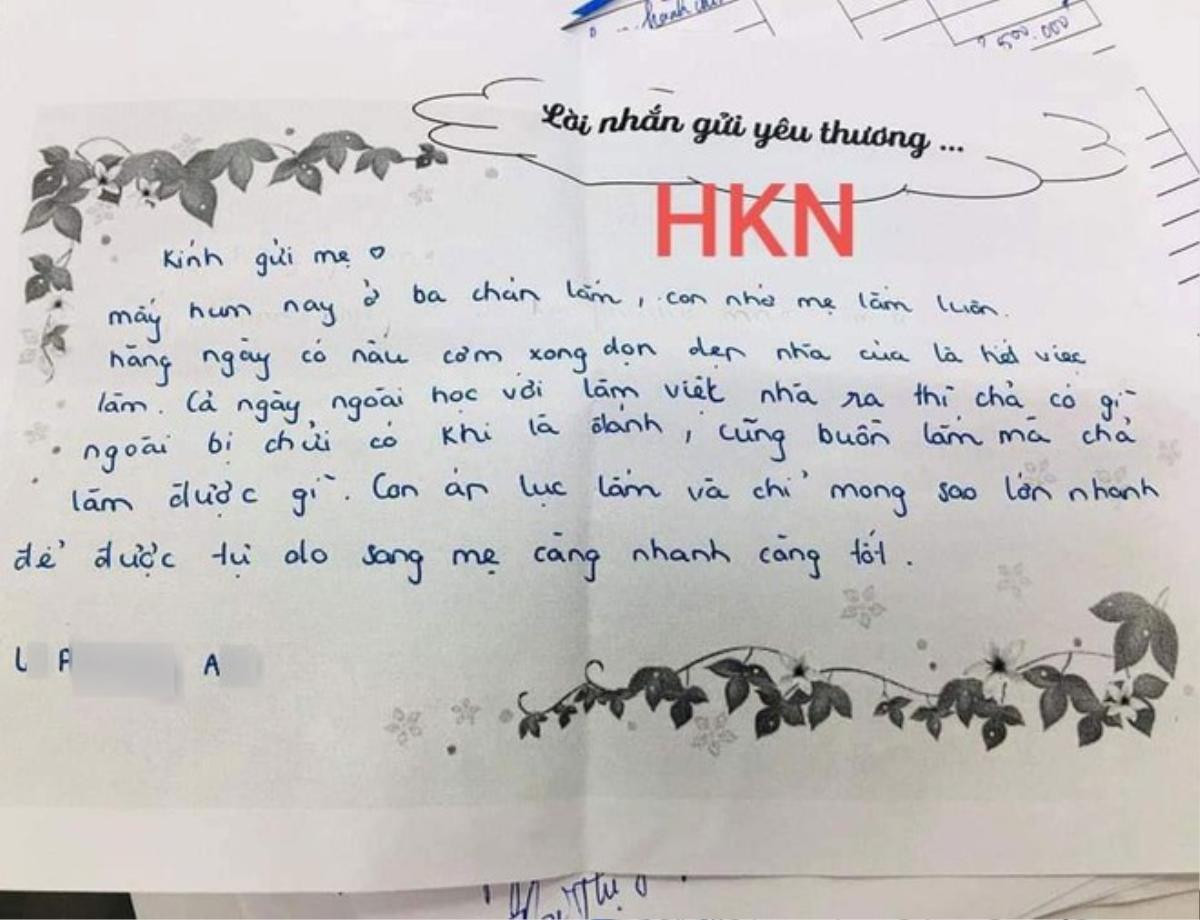 hành chí
500.000
Lời nhắn gửi yêu thương ...
HKN
Kính gửi mẹ ♡
mấy hum nay ở ba chán lắm, con nhớ mẹ lắm luôn.
hằng ngày có nấu cơm xong dọn dẹp nhà cửa là hết việc
làm. Cả ngày ngoài học với làm việt nhà ra thì chả có gì
ngoài bị chửi có khi là đánh, cũng buồn lắm mà chả
làm được gì. Con áp lực lắm và chỉ mong sao lớn nhanh
để được tự do sang mẹ càng nhanh càng tốt.
L A A